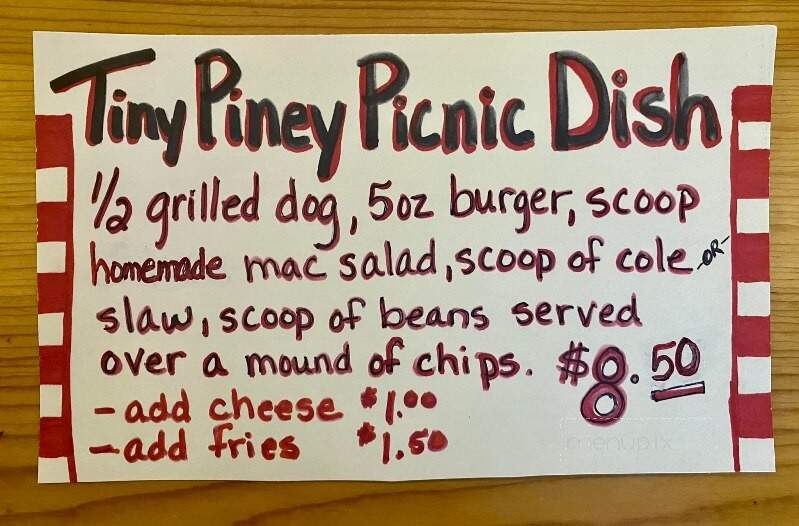 Tiny Piney Picnic Dish
1/2 grilled dog, 5oz burger, scoop
homemade mac salad, scoop of cole -OR-
slaw, scoop of beans served
over a mound of chips. $8.50
- add cheese $1.00
- add fries $1.50
menupix